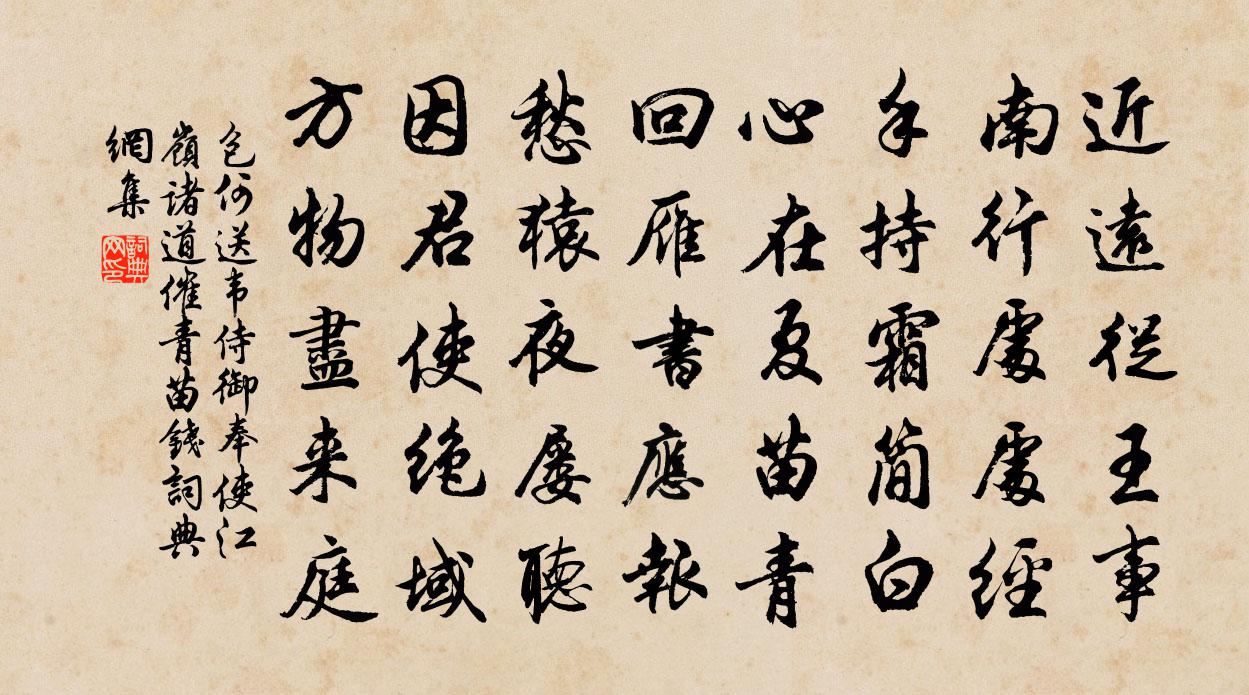 近遠從王事
南行處處經
手持霜簡白
心在夏苗青
回雁書應報
愁猿夜屢聽
因君使絶域
方物盡来庭
包何送韦侍御奉使江
嶺諸道催青苗錢詞典
網集
詞典
网印